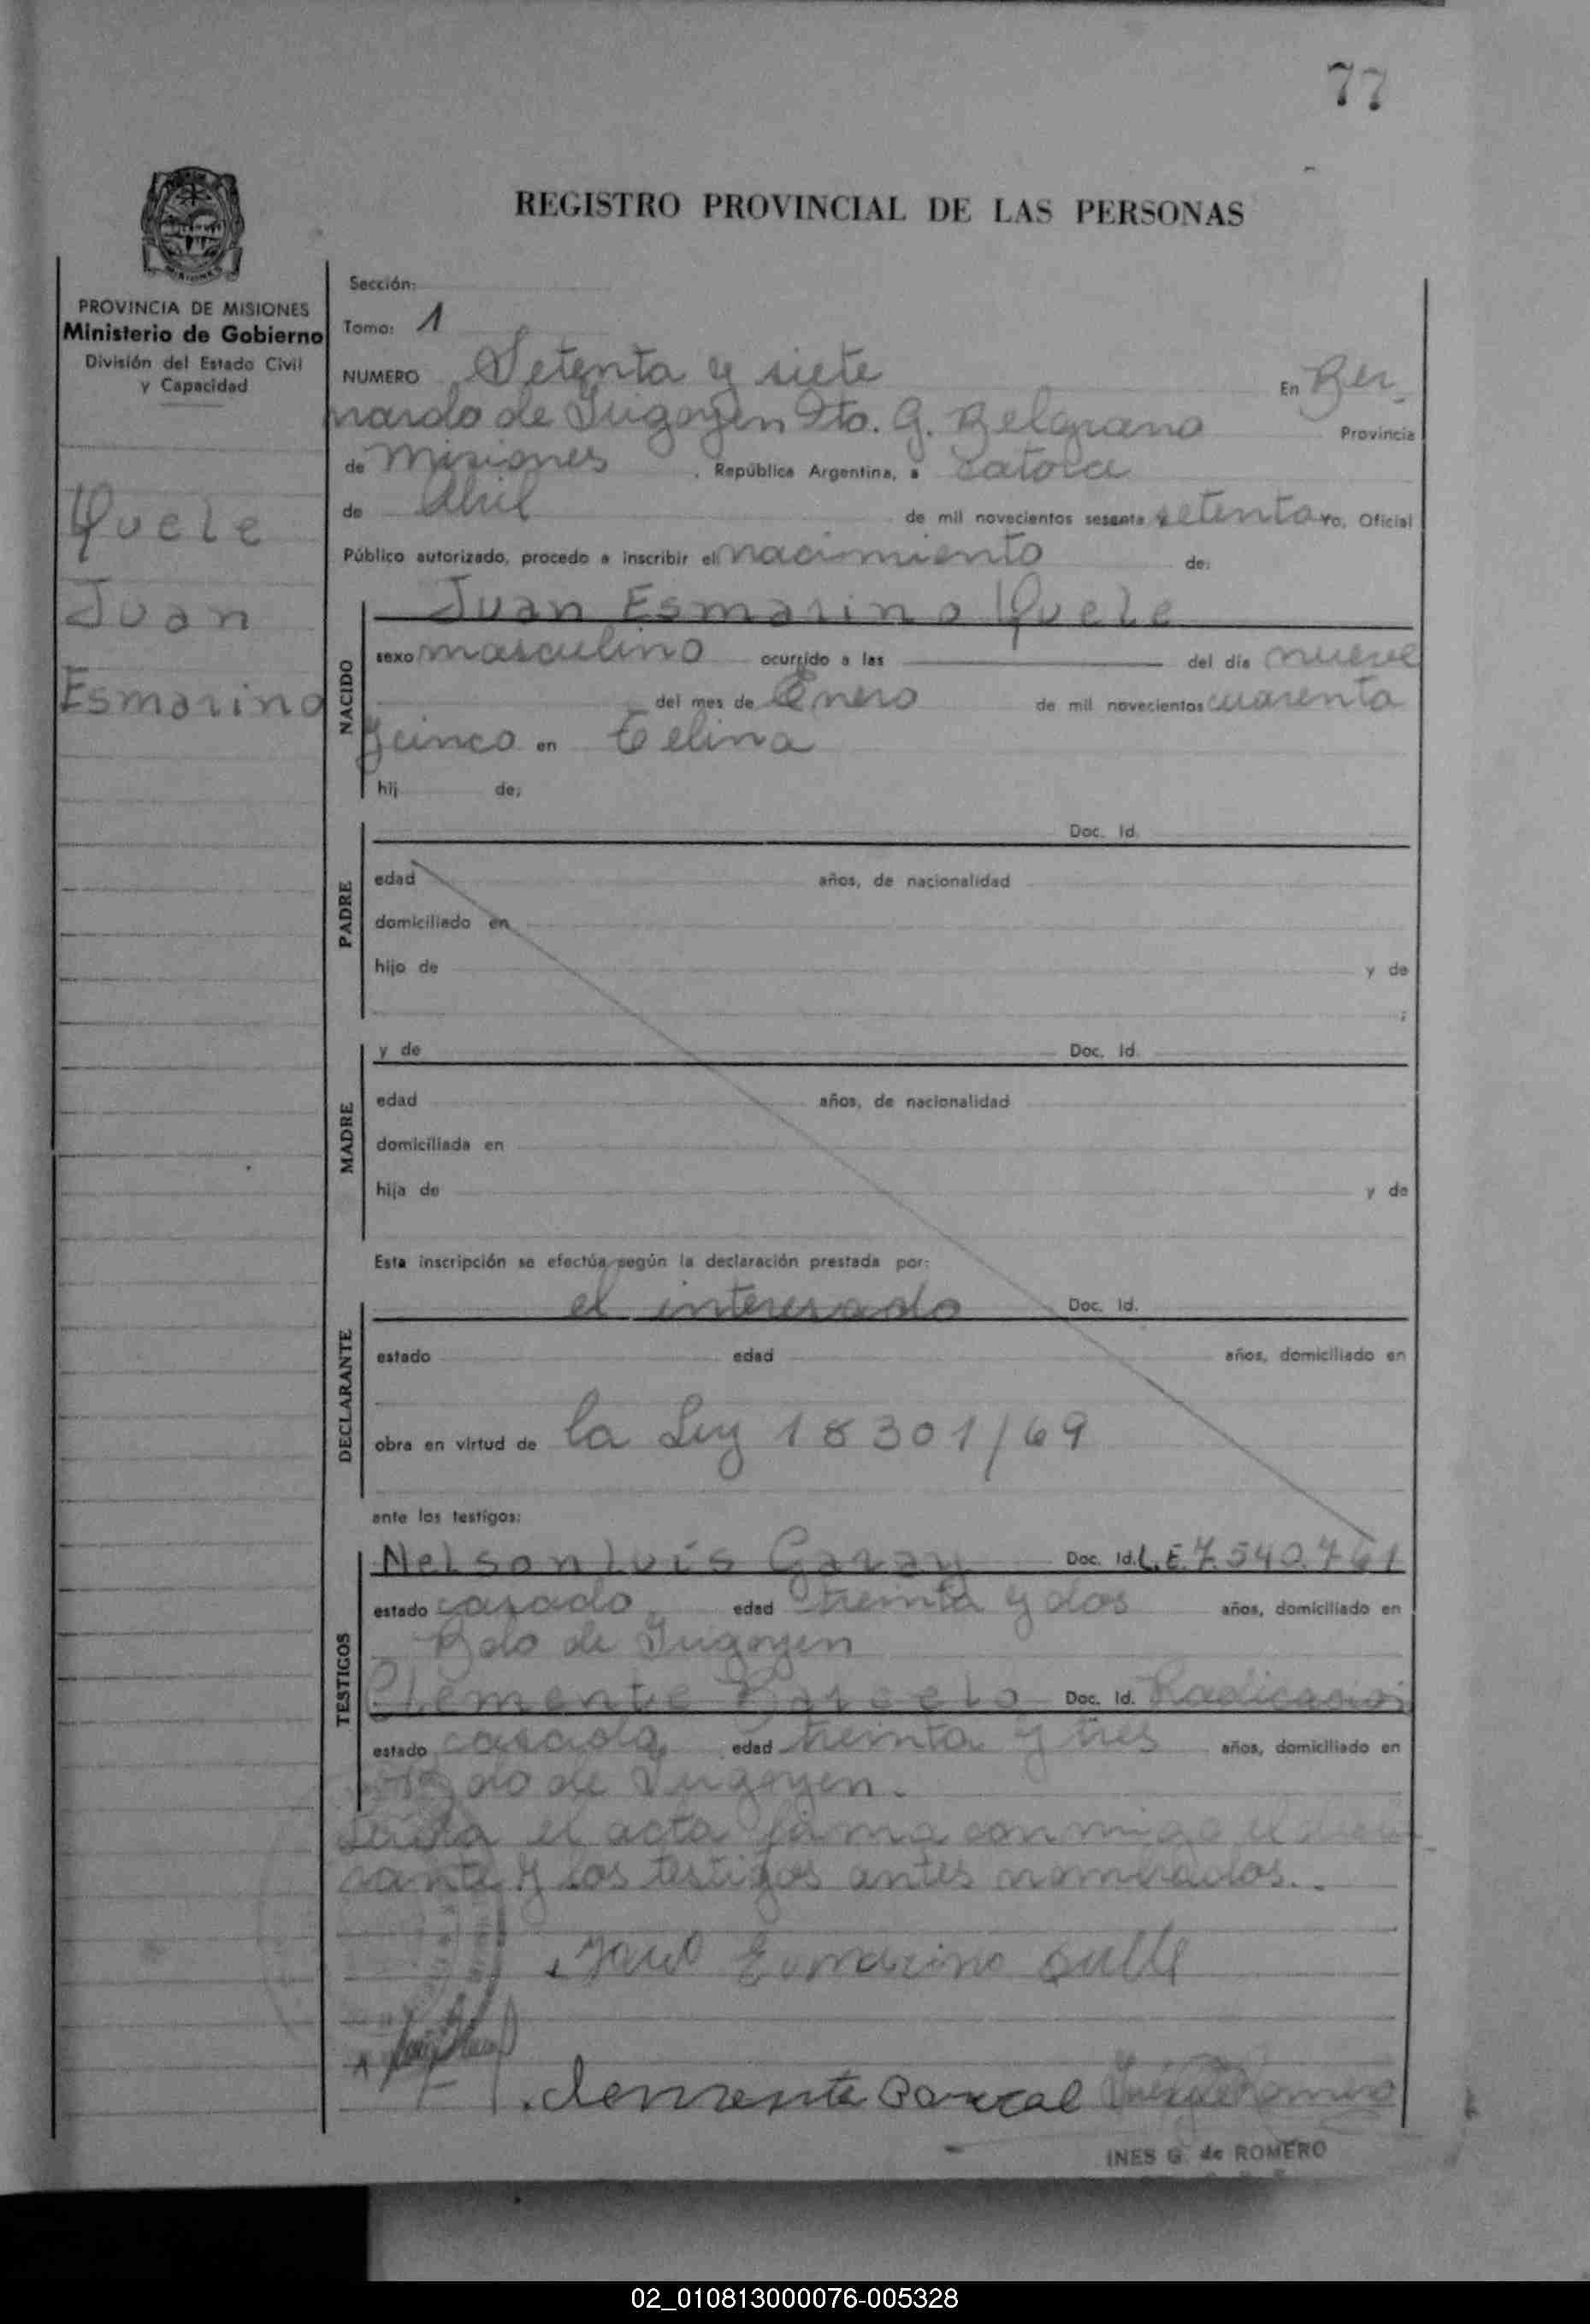 77
REGISTRO PROVINCIAL DE LAS PERSONAS
PROVINCIA DE MISIONES
Ministerio de Gobierno
División del Estado Civil
y Capacidad
Quele
Juan
Esmarino
Sección:
Tomo: 1
NUMERO Setenta y siete En Ber-
nardo de Irigoyen Dto. G. Belgrano Provincia
de Misiones, República Argentina, a catorce
de Abril de mil novecientos sesenta setenta Yo, Oficial
Público autorizado, procedo a inscribir el nacimiento de:
NACIDO
Juan Esmarino Quele
sexo masculino ocurrido a las del día nueve
del mes de Enero de mil novecientos cuarenta
y cinco en Celina
hij de;
PADRE
Doc. Id.
edad años, de nacionalidad
domiciliado en
hijo de y de
;
MADRE
y de Doc. Id.
edad años, de nacionalidad
domiciliada en
hija de y de
Esta inscripción se efectúa según la declaración prestada por:
DECLARANTE
el interesado Doc. Id.
estado edad años, domiciliado en
obra en virtud de la Ley 18301/69
ante los testigos:
TESTIGOS
Nelson Luis Garay Doc. Id. L.E. 7.540.761
estado casado edad treinta y dos años, domiciliado en
Bdo de Irigoyen
Clemente Doc. Id.
estado casado edad treinta y tres años, domiciliado en
Bdo de Irigoyen.
Leída el acta firma conmigo el
y los testigos antes nombrados..
Esmarino
clemente
INES G. de ROMERO
02_010813000076-005328